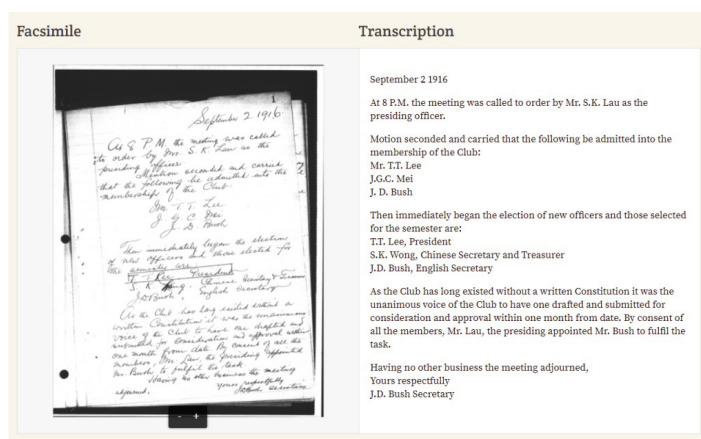 Facsimile
1
September 2 1916
At 8 P.M. the meeting was called
to order by Mr. S. K. Lau as the
presiding officer.
that the following be admitted into the
membership of the Club
Mr. T. T. Lee
J. G. C. Mei
J. D. Bush
Then immediately began the election
of new officers and those elected for
the semester are:
T. T. Lee, President
S. K. Wong, Chinese Secretary &
J.D. Bush, English Secretary
As the Club has long existed without a
written Constitution it was the unanimous
voice of the Club to have one drafted and
submitted for consideration and approval within
one month from date. By consent of all the
members, Mr. Lau, the presiding appointed
Mr. Bush to fulfil the task.
Having no other business the meeting
adjourned,
Yours respectfully
J.D. Bush Secretary
- +
Transcription
September 2 1916
At 8 P.M. the meeting was called to order by Mr. S.K. Lau as the
presiding officer.
Motion seconded and carried that the following be admitted into the
membership of the Club:
Mr. T.T. Lee
J.G.C. Mei
J. D. Bush
Then immediately began the election of new officers and those selected
for the semester are:
T.T. Lee, President
S.K. Wong, Chinese Secretary and Treasurer
J.D. Bush, English Secretary
As the Club has long existed without a written Constitution it was the
unanimous voice of the Club to have one drafted and submitted for
consideration and approval within one month from date. By consent of
all the members, Mr. Lau, the presiding appointed Mr. Bush to fulfil the
task.
Having no other business the meeting adjourned,
Yours respectfully
J.D. Bush Secretary